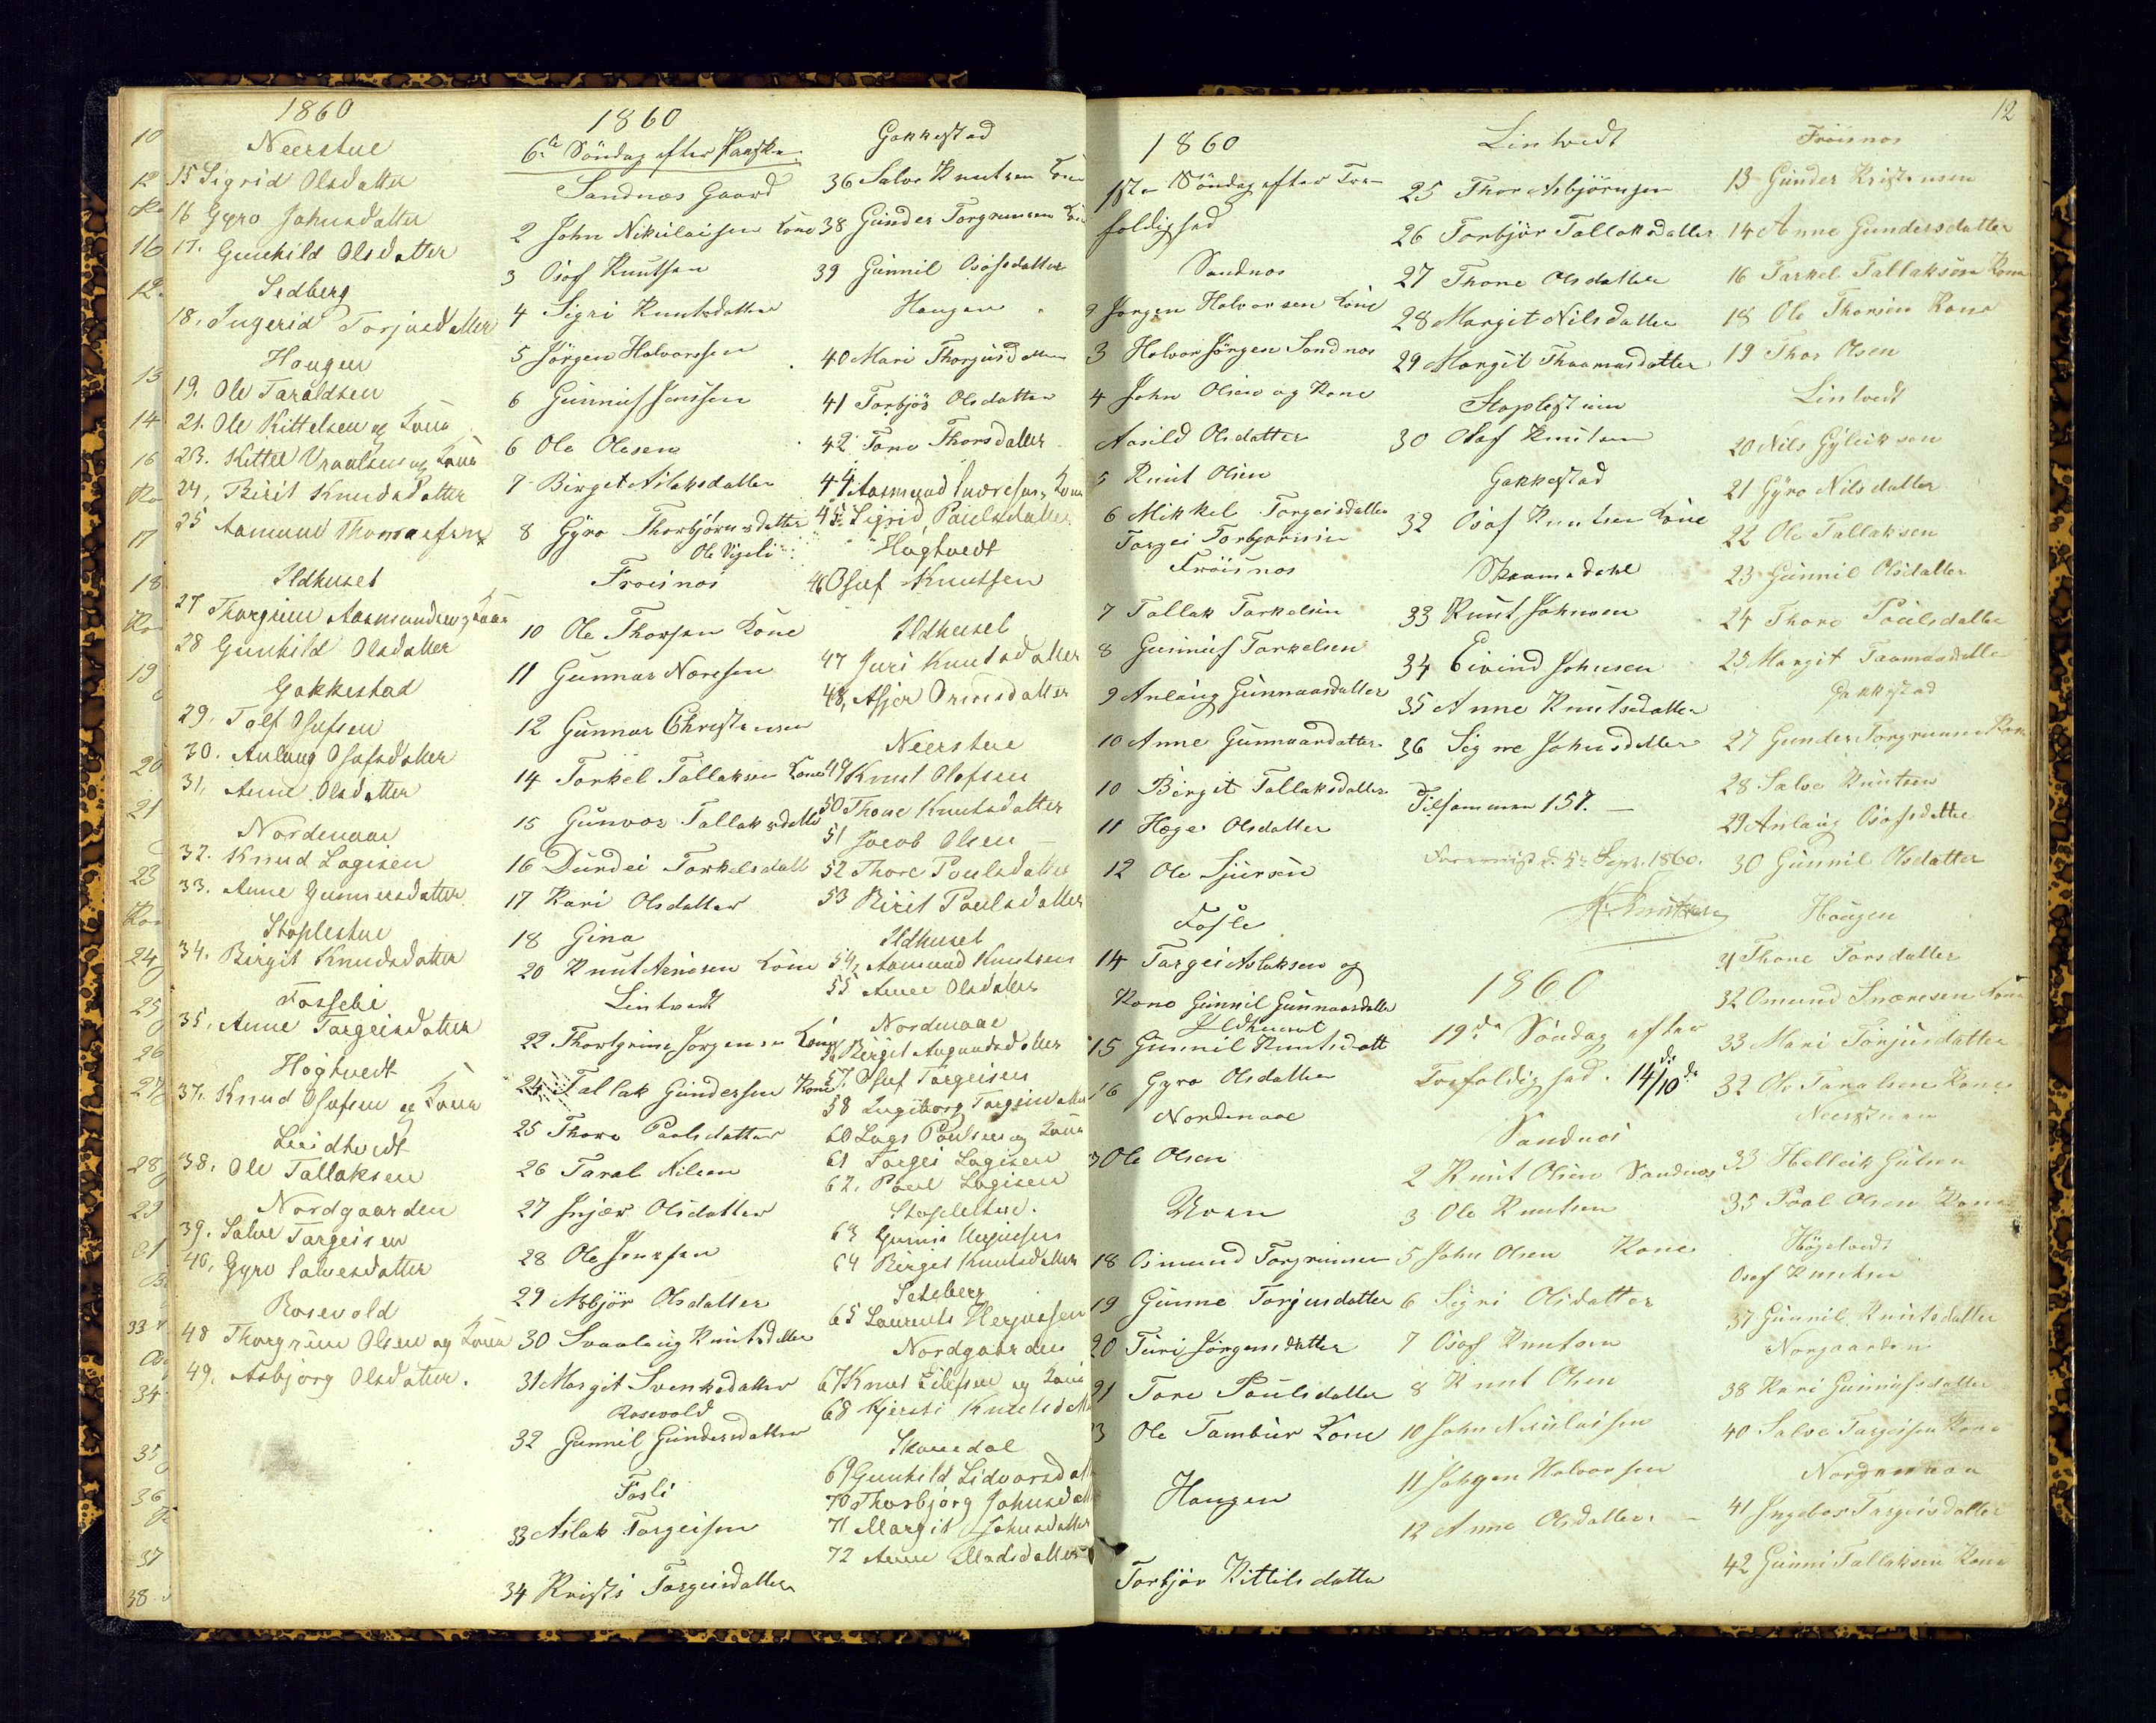 1860
Neerstue
15 Sigrid Olsdatter
16 Gyro Johnsdatter
17. Gunhild Olsdatter
Sedberg
18. Ingerid Torjusdatter
Haugen
19. Ole Taraldsen
21. Ole Kittelsen og Kone
23. Kittel Vraalsen og Kone
24, Birit Knudsdatter
25 Aamund
Ildhuset
27 Thorgrim Aasmundsen og Kone
28 Gunhild Olsdatter
Gakkestad
29. Tolf Osufsen
30. Anlaug Osufsdatter
31, Anne Olsdatter
Nordenaae
32. Knud Lagesen
33. Anne Gunnersdatter
Staplestue
34. Birgit Knudsdatter
Fosselie
35, Anne Targeisdatter
Høghvedt
37. Knud Osufsen og Kone
Lindtvedt
38. Ole Tallaksen
Nordgaarden
39. Salve Targeisen
40, Gyro Salvesdatter
Rosevold
48 Thorgrim Olsen og Kone
49, Asbjørg Olsdatter.
1860
6te Søndag efter Paaske
Sandnæs Gaard
2 John Nikulaisen Kone
3 Osof Knutsen
4 Sigri Knutsdatter
5 Jørgen Halvorsen
6 Gunnuf Jonssen
6 Ole Olesen
7 Birget Aslaksdatter
8 Gyro Thorbjørnsdatter
Ole Vigeli
Froisnos
10 Ole Thorsen Kone
11 Gunnar Noresen
12 Gunnar Christensen
14 Torkel Tallaksen Kone
15 Gunvor Tallaksdatte
16 Durdei Torkelsdatt
17 Kari Olsdatter
18 Gina
20 Knut Aanesen Kone
Lintvedt
22 Thorgrim Jorgensen Kone
24 Tallak Gundersen Kone
25 Thore Paalsdatter
26 Taral Nilsen
27 Injær Olsdatter
28 Ole Jensen
29 Asbjør Olsdatter
30 Svanlaug Knutsdatter
31 Margit Svenkedatter
Rosevold
32 Gunnil Gundersdatter
Fosli
33 Aslak Torgeisen
34 Kristi Torgeisdatter
Gakkestad
36 Salve Knutsen Kone
38 Gunder Torgrimsen Kone
39 Gunnil Osofsdatter
Haugen
40 Mari Thorjusdatter
41 Torbjør Olsdatter
42 Tone Thorsdatter
44 Aasmund Snoresen Kone
45 Sigrid Paulsdatter
Høgtvedt
46 Osuf Knutsen
Ildhuset
47 Juri Knutsdatter
48, Asjer Ormsdatter
Neerstue
49 Knut Olofsen
50 Thone Knutsdatter
51 Jacob Olsen
52 Thore Poulsdatter
53 Birit Poulsdatter
Ildhuset
54, Aamund Knutsen
55 Anne Olsdatter
Nordenaae
56 Birgit Augundsdatter
57. Osuf Targeisen
58 Ingeborg Targeisdatter
60 Lage Poulsen og Kone
61 Targei Lagesen
62. Poul Lagesen
Staplestue.
63 Gunne
64 Birgit Knutsdatter
Seteberg
65 Laurents Herjusson
Nordgaarden
67 Knut Eilefsen og Kone
68 Kjersti Knutsdatte
Skomedal
69 Gunhild Lidvarsdat
70 Thorbjørg Johnsdatt
71 Margit Johnsdatter
72 Anne Madsdatter
12
1860
1ste Søndag efter Tre-
foldighed
Sandnos
2 Jorgen Halvorsen Kone
3 Halvor Jörgen Sandnos
4 John Olsen og Kone
Aasild Olsdatter
5 Knut Olsen
6 Mikkel Torgeisdatter
Torgei Torbjornsen
Fröisnos
7 Tallak Torkelsen
8 Gunnuf Torkelsen
9 Anlaug Gunnaasdatter
10 Anne Gunnaardatter
10 Birgit Tallaksdatter
11 Hæge Olsdatter
12 Ole Sjursen
Fosle
14 Targei Aslaksen og
Kono Gunnil Gunnaarsdatter
Ildhuset
15 Gunnil Knutsdatt
16 Gyro Olsdatter
Nordenaae
Ole Olsen
Moen
18 Osmund Torgrimsen
19 Gunne Torjusdatter
20 Turi Jørgensdatter
21 Tore Poulsdatter
23 Ole Tambur Kone
Haugen
Torbjør Kittilsdatter
Lintvedt
25 Thor Asbjørnsen
26 Torbjør Tallaksdatter
27 Thone Olsdatter
28 Margit Nilsdatter
29 Margit Thaamasdatter
Staplestuen
30 Olaf Knutsen
Gakkestad
32 Osof Knutsen Kone
Skaamedahl
33 Knut Johnsen
34 Eivind Johnsen
35 Anne Knutsdatter
36 Signe Johnsdatter
Tilsammen 157.
Foreevist d. 5te Septr. 1860.
1860
19de Søndag efter
Trefoldighed. 14de/10de
Sandnos
2 Knut Olsen Sandnos
3 Ole Knutsen
5 John Olsen Kone
6 Sigri Olsdatter
7 Osof Knutsen
8 Knut Olsen
10 John Nikulaisen
11 Jørgen Halvorsen
12 Anne Olsdatter
Fröisnos
13 Gunder Kristensen
14 Anne Gundersdatter
16 Tarkel Tallaksen Kone
18 Ole Thorsen Kone
19 Thor Olsen
Lintvedt
20 Nils Gjleikson
21 Gyro Nilsdatter
22 Ole Tallaksen
23 Gunnil Olsdatter
24 Thore Poulsdatter
25 Margit Taamasdatte
Gakkestad
27 Gunder Torgrimsen Kone
28 Salve Knutsen
29 Anlaug Osofsdatter
30 Gunnil Olsdatter
Haugen
31 Thone Torsdatter
32 Omund Snoresen Kone
33 Mari Torjusdatter
32 Ole Taralsen Kone
Neerstuen
33 Helleik Gulsen
35 Poal Olsen Kone
Høgetvedt
Osof Knutsen
37 Gunnil Knutsdatter
Norgaarden
38 Kari Gunnufsdatter
40 Salve Targeisen Kone
Nordenaaa
41 Ingebor Targeisdatter
42 Gunni Tallaksen Kone